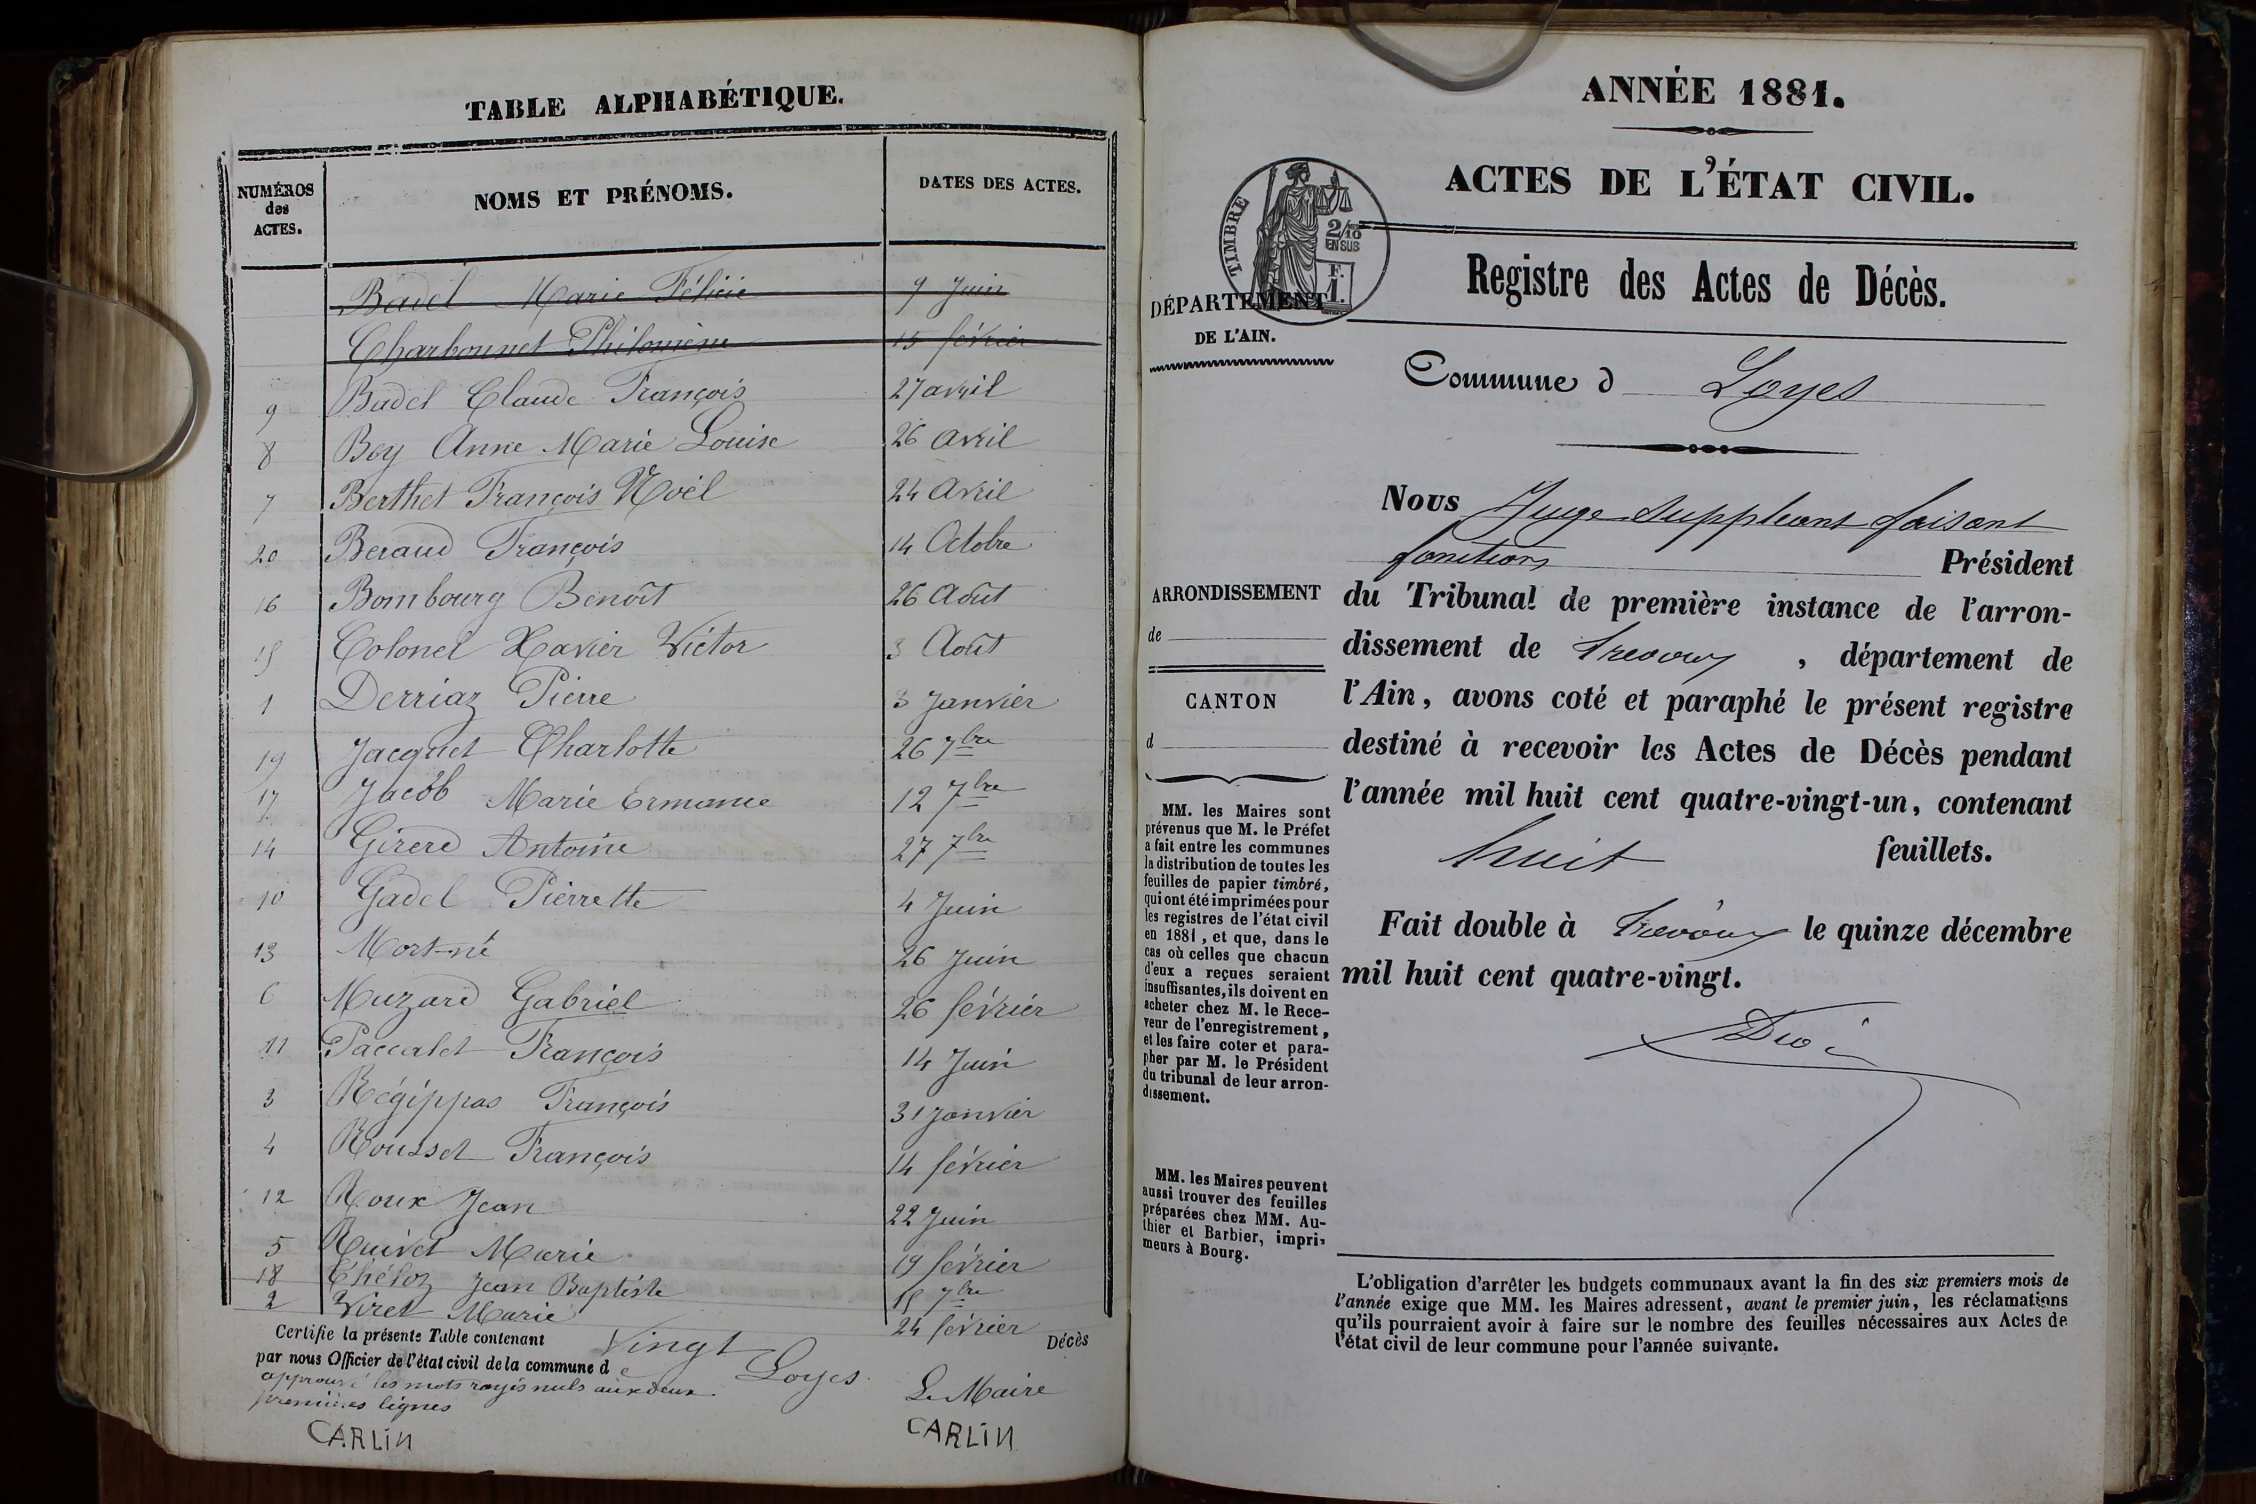 TABLE ALPHABÉTIQUE.
NUMÉROS des ACTES. NOMS ET PRÉNOMS. DATES DES ACTES.
Badel Marie Félicie 9 Juin
Charbonnet Philomène 15 février
9 Badel Claude François 27 avril
8 Bey Anne Marie Louise 26 avril
7 Berthet François Noël 24 avril
20 Beraud François 14 Octobre
16 Bombourg Benoît 26 Août
15 Colonel Xavier Victor 3 Août
1 Derriaz Pierre 3 Janvier
19 Jacquet Charlotte 26 7bre
17 Jacob Marie Ermance 12 7bre
14 Girerd Antoine 27 7bre
10 Gadel Pierrette 4 Juin
13 Mort-né 26 Juin
6 Muzard Gabriel 26 février
11 Paccalet François 14 Juin
3 Régippas François 31 Janvier
4 Rousset François 14 février
12 Roux Jean 22 Juin
5 Ruivet Marie 19 février
18 Théloz Jean Baptiste 15 7bre
2 Viret Marie 24 février
Certifie la présente Table contenant Vingt Décès
par nous Officier de l'état civil de la commune de Loyes.
approuvé les mots rayés nuls aux deux
premières lignes
Le Maire
CARLIN CARLIN
ANNÉE 1881.
ACTES DE L'ÉTAT CIVIL.
TIMBRE
2/10
EN SUS
F.
1.
Registre des Actes de Décès.
DÉPARTEMENT
DE L'AIN.
Commune d Loyes
Nous Juge suppléant faisant
fonctions Président
du Tribunal de première instance de l'arron-
dissement de Trévoux, département de
l'Ain, avons coté et paraphé le présent registre
destiné à recevoir les Actes de Décès pendant
l'année mil huit cent quatre-vingt-un, contenant
huit feuillets.
Fait double à Trévoux le quinze décembre
mil huit cent quatre-vingt.
ARRONDISSEMENT
de
CANTON
d
MM. les Maires sont
prévenus que M. le Préfet
a fait entre les communes
la distribution de toutes les
feuilles de papier timbré,
qui ont été imprimées pour
les registres de l'état civil
en 1881, et que, dans le
cas où celles que chacun
d'eux a reçues seraient
insuffisantes, ils doivent en
acheter chez M. le Rece-
veur de l'enregistrement,
et les faire coter et para-
pher par M. le Président
du tribunal de leur arron-
dissement.
MM. les Maires peuvent
aussi trouver des feuilles
préparées chez MM. Au-
thier et Barbier, impri-
meurs à Bourg.
L'obligation d'arrêter les budgets communaux avant la fin des six premiers mois de
l'année exige que MM. les Maires adressent, avant le premier juin, les réclamations
qu'ils pourraient avoir à faire sur le nombre des feuilles nécessaires aux Actes de
l'état civil de leur commune pour l'année suivante.